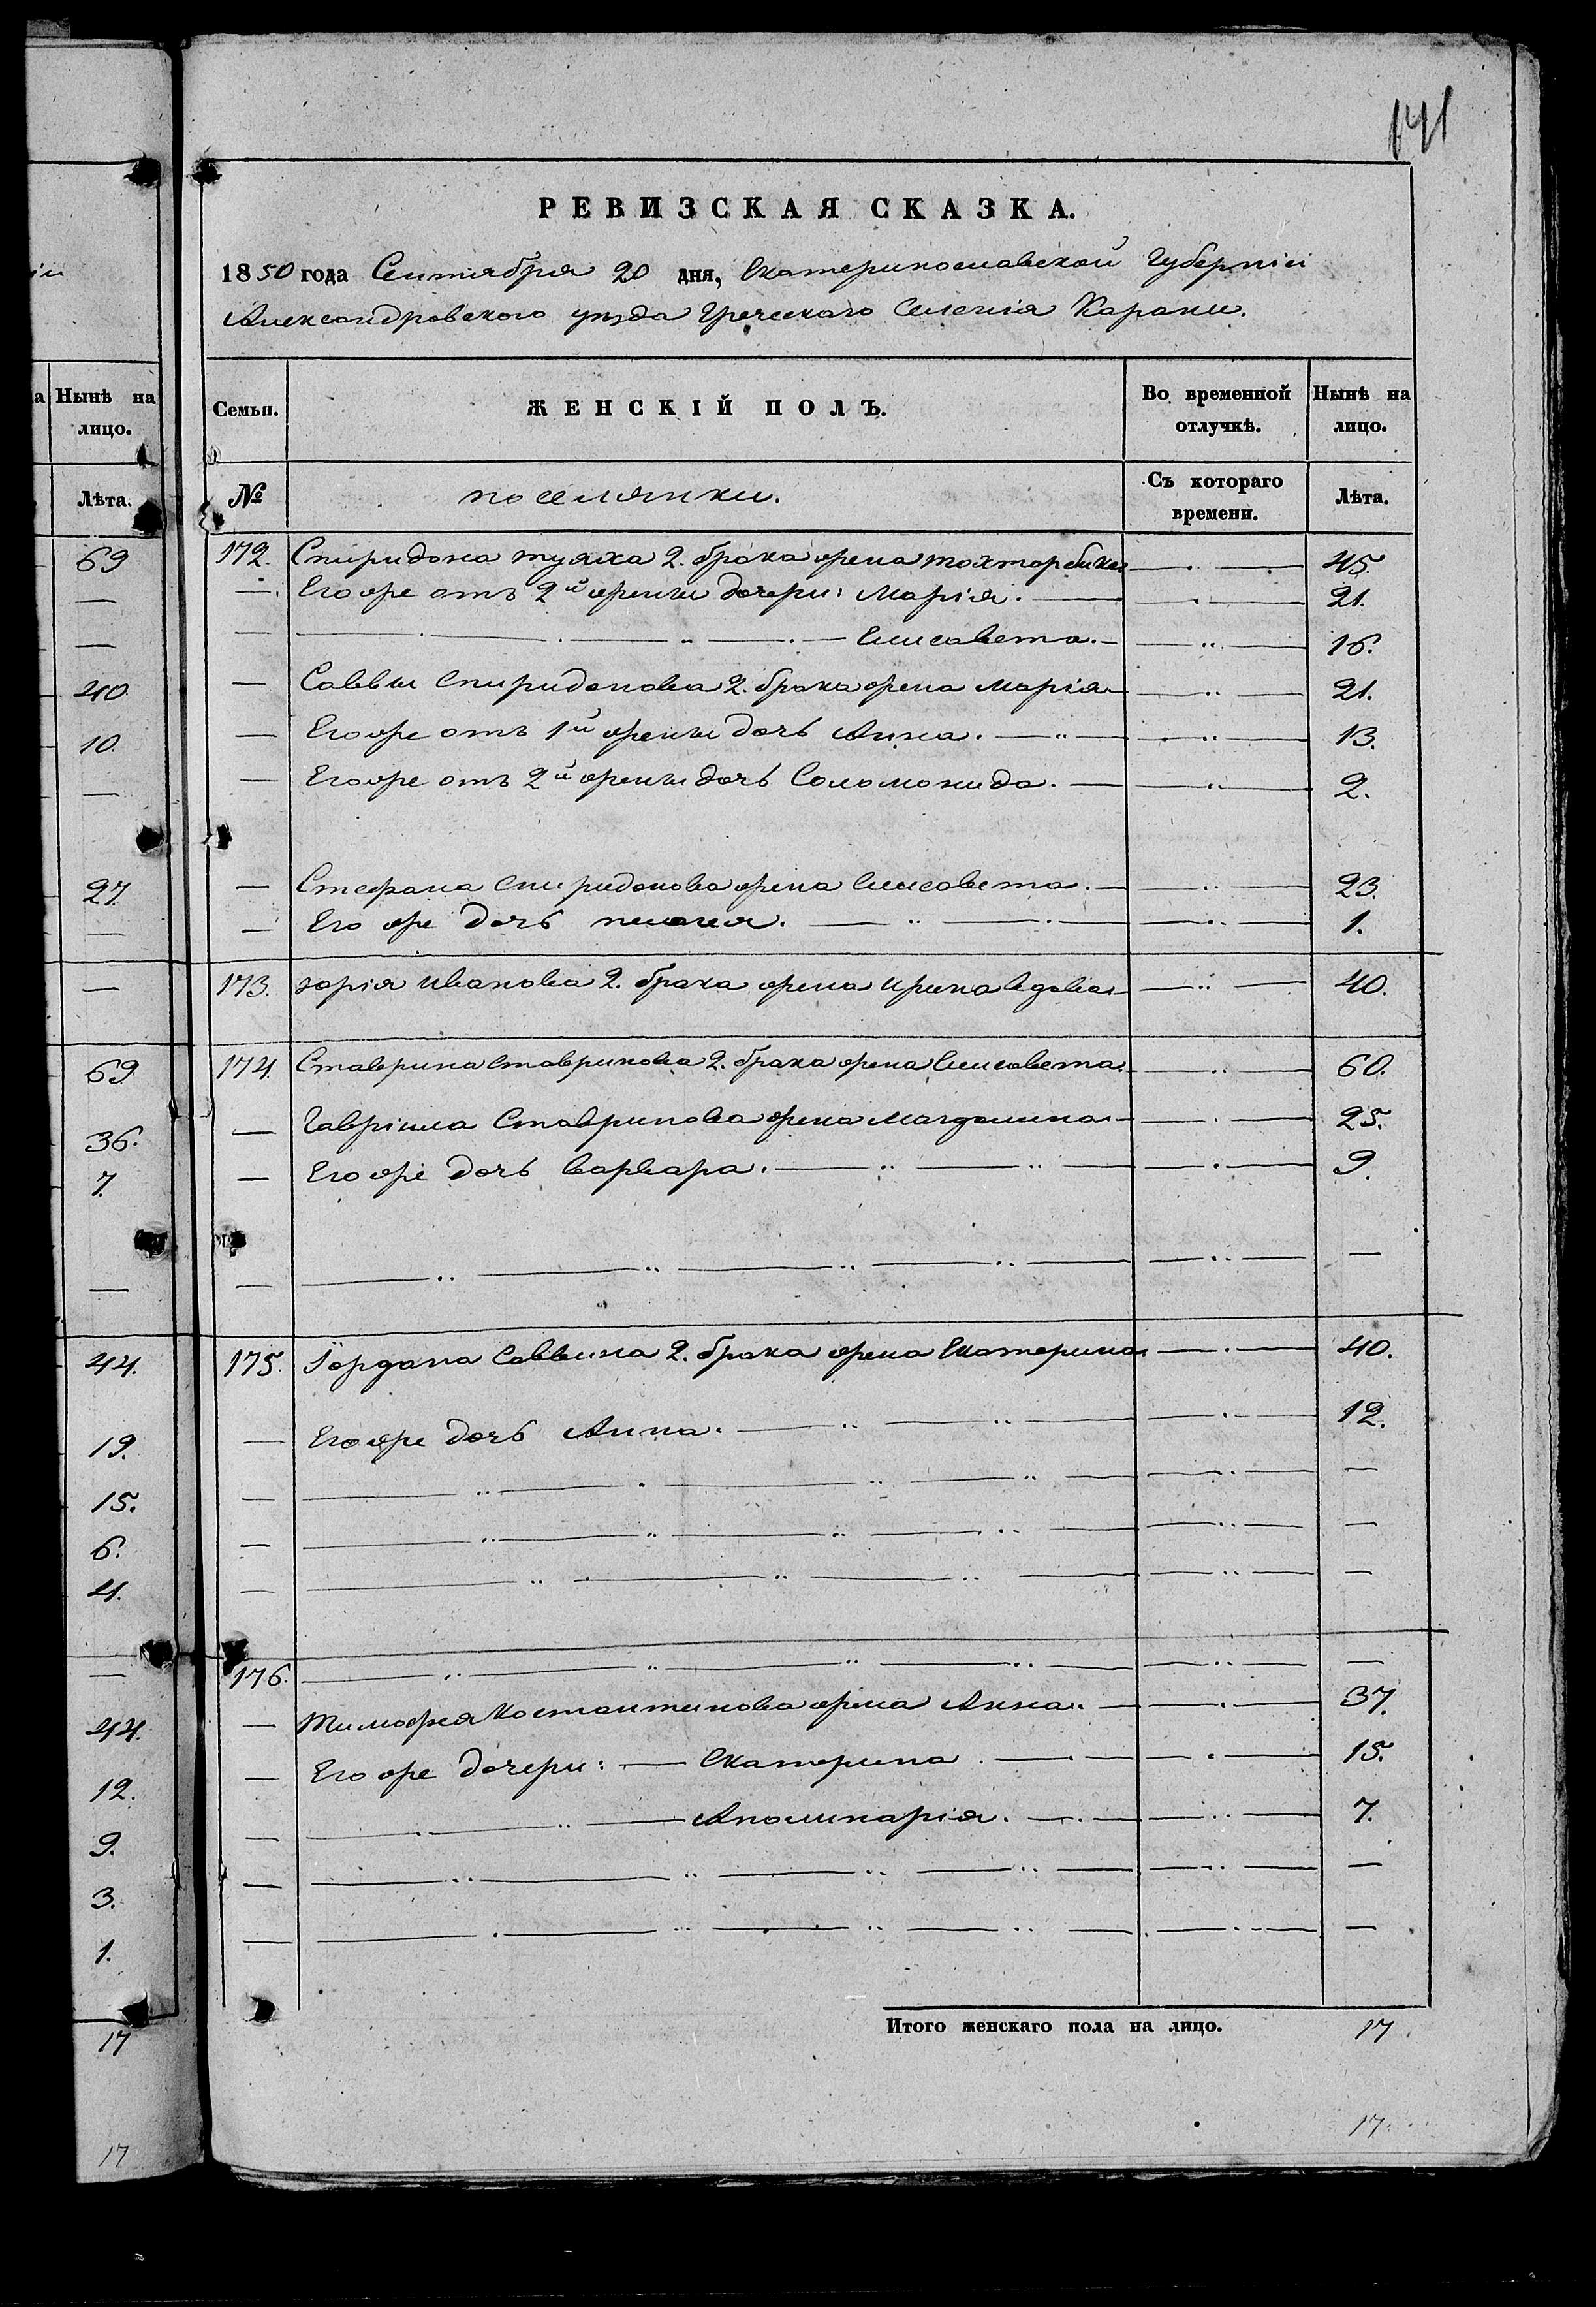 141
РЕВИЗСКАЯ СКАЗКА.
1850 года Сентября 20 дня, Екатеринославской Губерніи
Александровского уѣзда Греческаго Селенія Карани.
а Нынѣ на лицо.
Лѣта.
69
—
—
40
10.
—
27.
—
—
69
36.
7.
—
44.
19.
15.
6.
4.
—
44.
12.
9.
3.
1.
17
17
Семьи. ЖЕНСКІЙ ПОЛЪ. Во временной отлучкѣ. Нынѣ на лицо.
№ поселянки. Съ котораго времени. Лѣта.
172. Спиридона туяха 2. брака жена тохторбика 45.
— Его же отъ 2й жены дочери: Марія. 21.
— Елисавета. 16.
— Саввы Спиридонова 2. брака жена Марія 21.
— Его же отъ 1й жены дочь Анна. 13.
— Его же отъ 2й жены дочь Соломонида. 2.
— Стефана Спиридонова жена Елисавета. 23.
— Его же дочь пелагея. 1.
173. юрія Иванова 2. брака жена ирина вдова 40.
174. Ставрина Ставринова 2. брака жена Елисавета. 60.
— Гавріила Ставринова жена Магдалина 25.
— Его же дочь варвара. 9.
— —
175. Іордана Саввина 2. брака жена Екатерина 40.
— Его же дочь Анна. 12.
— —
— —
— —
176. —
— Тимофея Костантинова жена Анна. 37.
— Его же дочери: — Екатерина. 15.
— Аполинарія. 7.
— —
— —
Итого женскаго пола на лицо. 17
17.